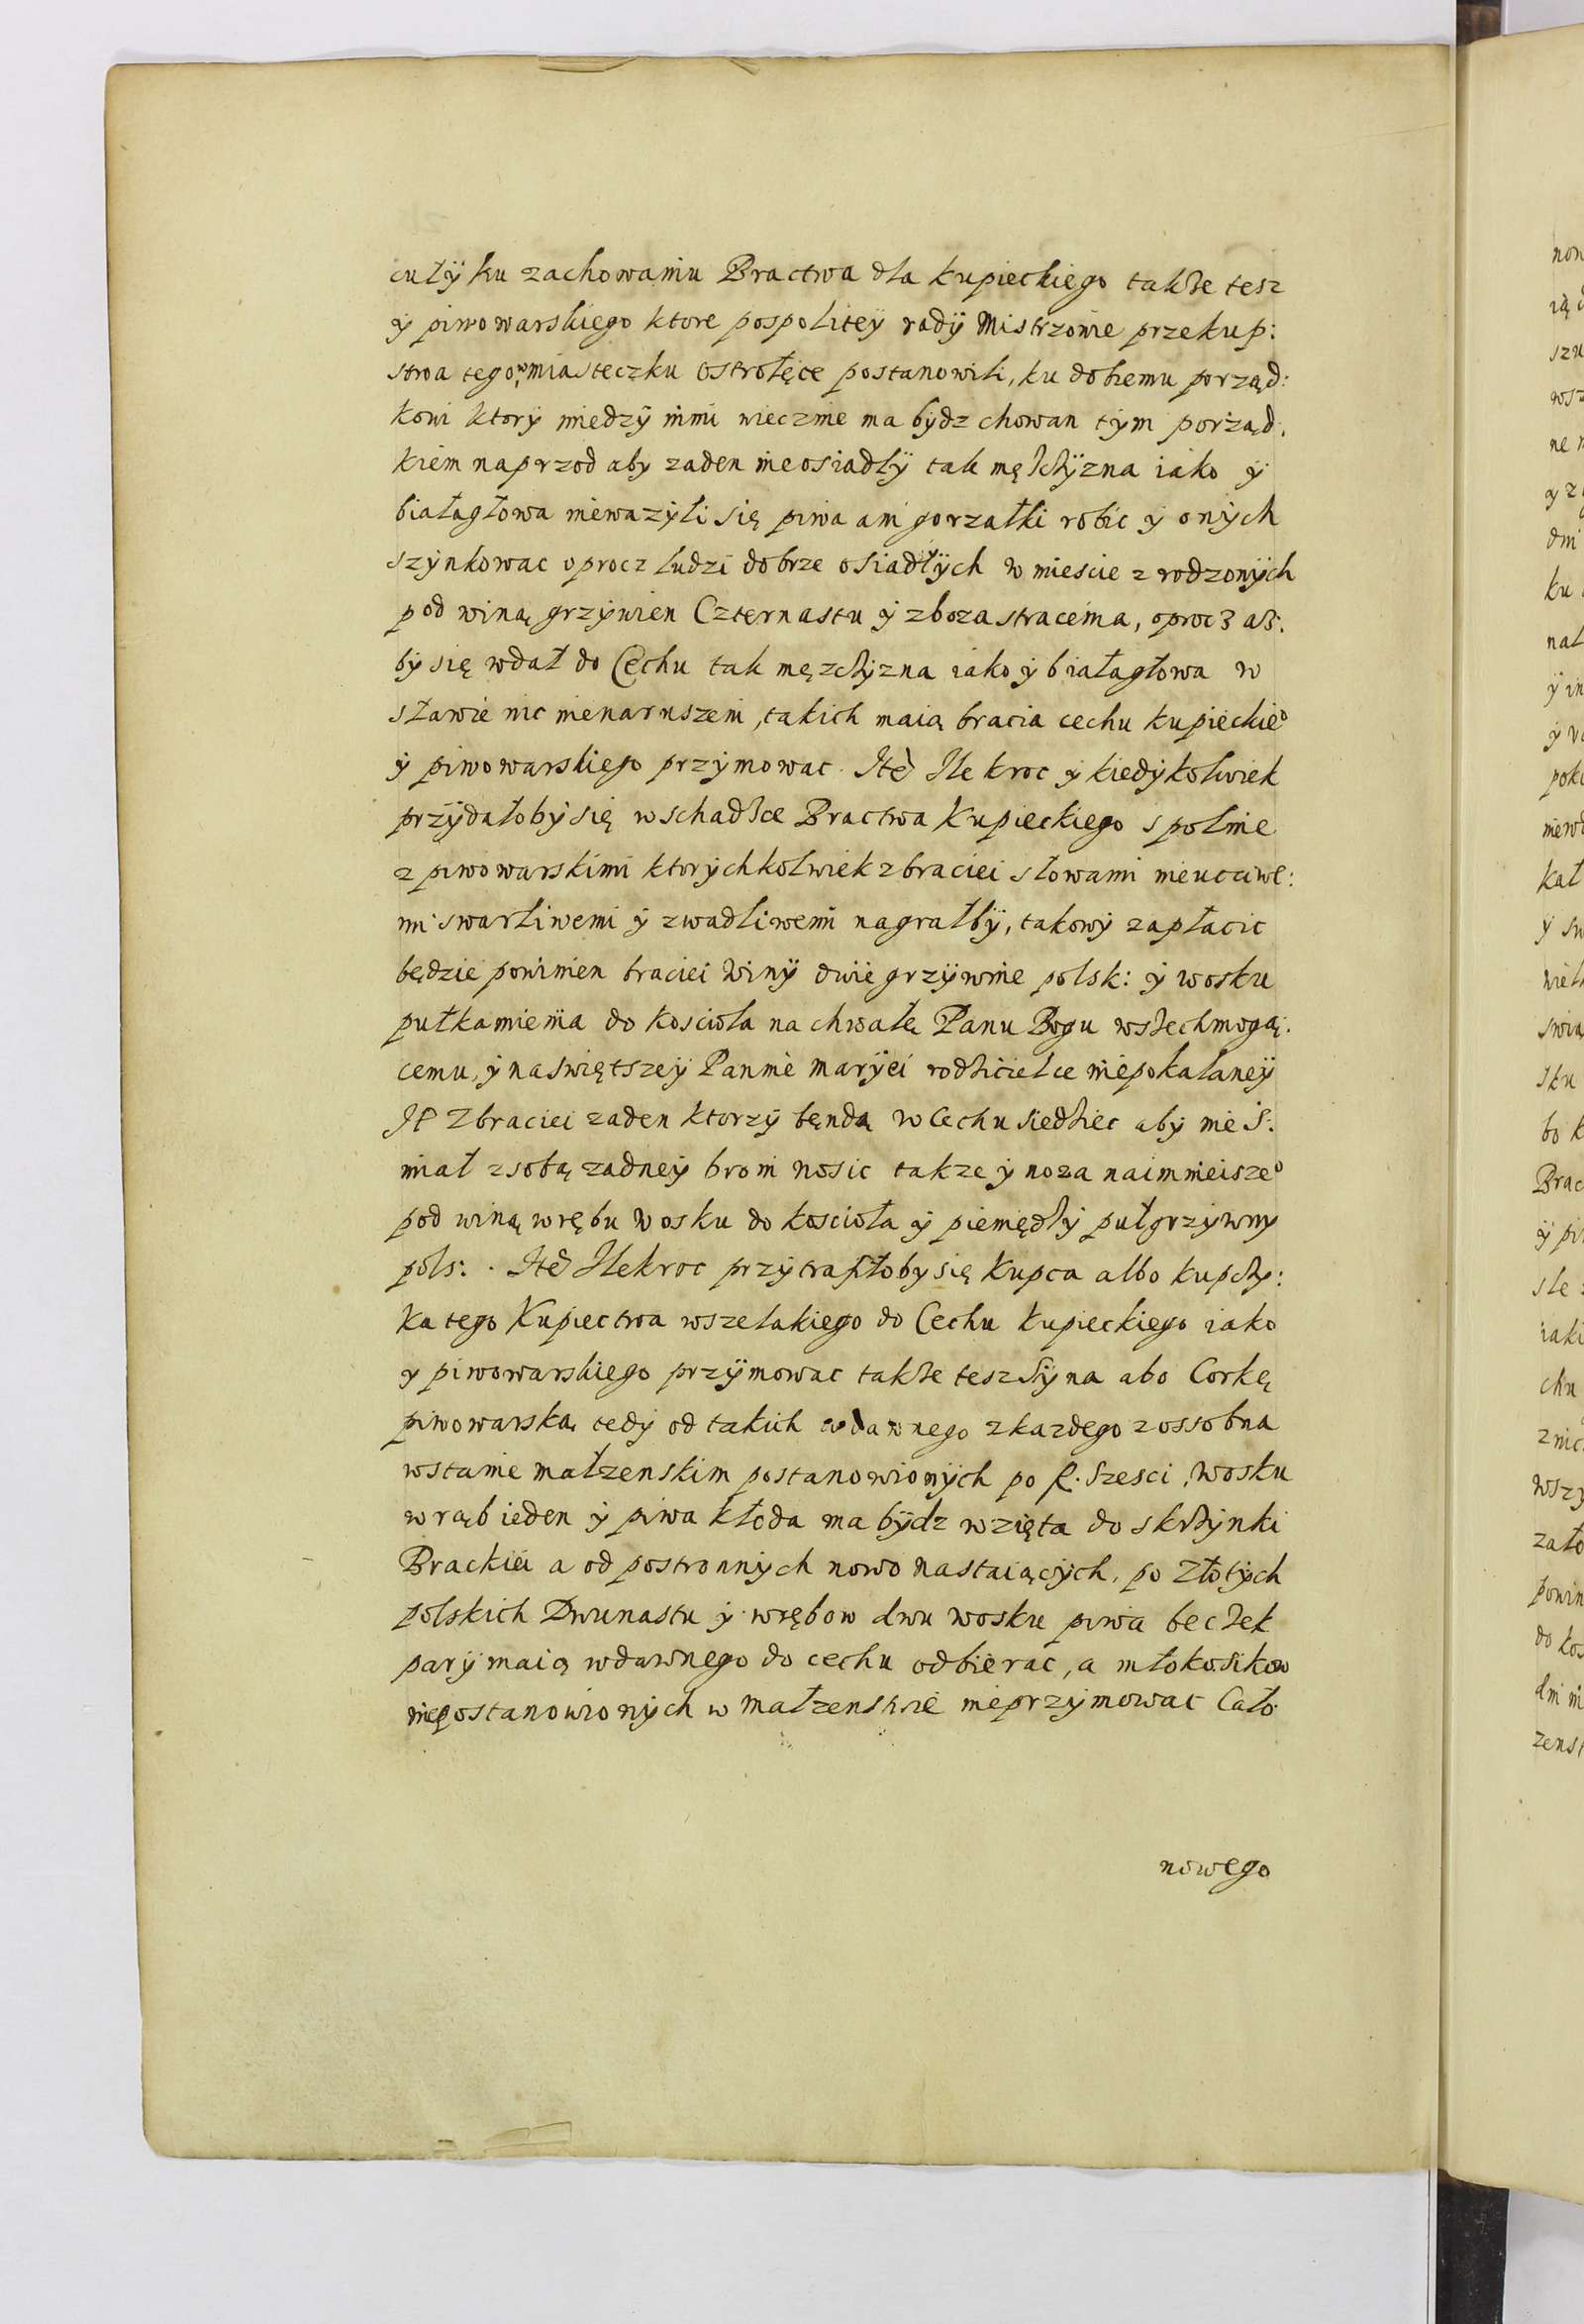 cułÿ ku zachowaniu Bractwa dla kupieckiego takze tesz
ÿ piwowarskiego ktore pospolitey radÿ Mistrzowie przekup:
stwa tego w miasteczku Ostrołęce postanowili, ku dobremu porząd:
kowi ktorÿ miedzÿ nimi wiecznie ma bÿdz chowan tÿm porząd.
kiem naprzod aby zaden nieosiadłÿ tak męszczÿzna iako ÿ
białagłowa niewazÿli się piwa ani gorzałki robic ÿ onÿch
szÿnkowac oprocz ludzi dobrze osiadłÿch w miescie zrodzonÿch
pod winą grzÿwien Czternastu ÿ zboza stracenia, oprocz asz.
bÿ się wdał do Cechu tak męzczÿzna iako ÿ białagłowa w
sławie nic nienaruszeni, takich maią bracia cechu kupieckieº
ÿ piwowarskiego przÿmowac. Ite Ile kroc ÿ kiedÿkolwiek
przÿdałobÿ się w schadzce Bractwa Kupieckiego spolnie
z piwowarskimi ktorÿchkolwiek z braciei słowami nieucciwe:
mi swarliwemi ÿ zwadliwemi nagrałbÿ, takowÿ zapłacic
będzie powinien braciei Winÿ dwie grzÿwnie polsk: ÿ wosku
pułkamienia do kosciola na chwałę Panu Bogu wszechmogą.
cemu, ÿ naswiętszeÿ Pannie Marÿei rodzicielce niepokalaneÿ
It Zbraciei zaden ktorzÿ bęndą w Cechu siedziec abÿ nie s.
miał z sobą zadneÿ broni nosic takze ÿ noza naimnieiszeº
pod winą wrębu wosku do kosciola ÿ pieniędzÿ pułgrzÿwnÿ
pols: . Ite Ilekroc przÿtrafiłoby się Kupca albo kupczÿ:
ka tego Kupiectwa wszelakiego do Cechu kupieckiego iako
ÿ piwowarskiego przÿmowac takze tesz Sÿna abo Corkę
piwowarską tedÿ od takich wdawnego z kazdego z ossobna
wstanie małzenskim postanowionÿch po fl. szesci, wosku
wrąb ieden ÿ piwa kłoda ma bÿdz wzięta do skrzÿnki
Brackiei a od postronnÿch nowo nastaiącÿch, po złotÿch
polskich Dwunastu ÿ wrębow dwu wosku piwa beczek
parÿ maią wdawnego do cechu odbierac, a młokosikow
niepostanowionÿch w małzenstwie nieprzÿmowac Cało
nowego